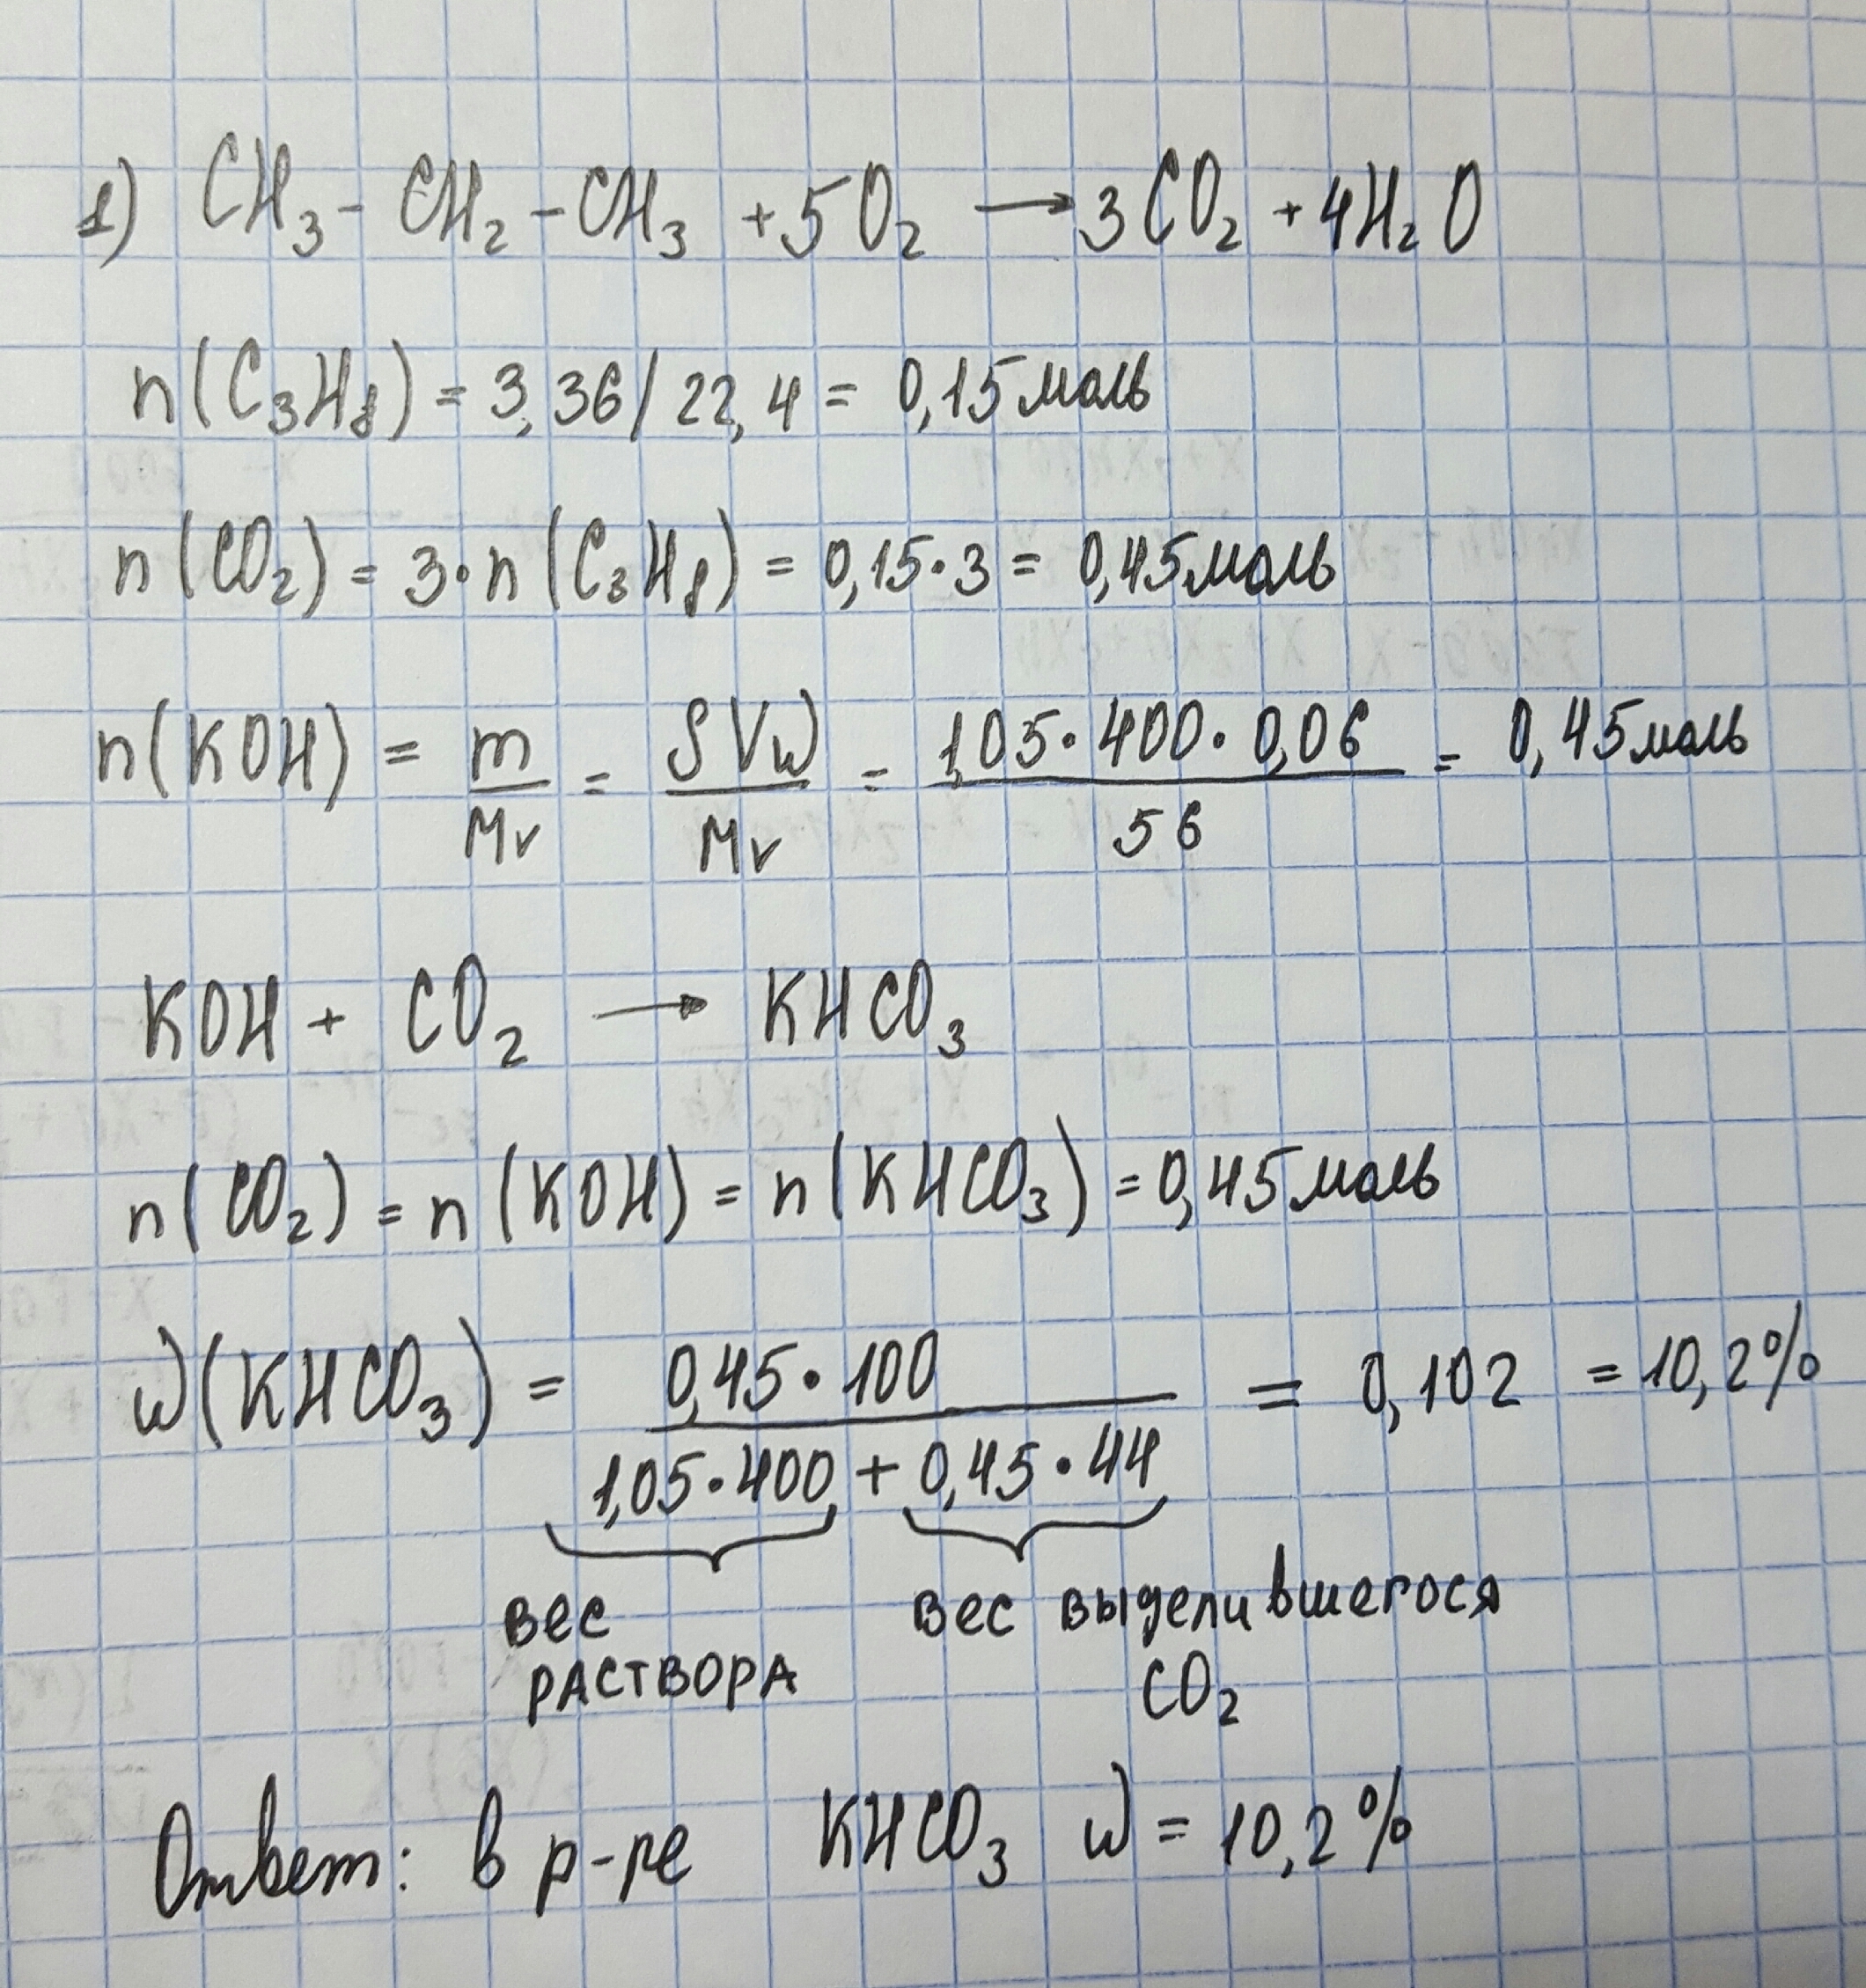 1) CH₃ - CH₂ - CH₃ + 5O₂ → 3CO₂ + 4H₂O
n(C₃H₈) = 3,36 / 22,4 = 0,15 моль
n(CO₂) = 3·n(C₃H₈) = 0,15·3 = 0,45 моль
n(KOH) = m/Mr = ρVω/Mr = 1,05·400·0,06/56 = 0,45 моль
KOH + CO₂ → KHCO₃
n(CO₂) = n(KOH) = n(KHCO₃) = 0,45 моль
ω(KHCO₃) = 0,45·100/(1,05·400 + 0,45·44) = 0,102 = 10,2%
вес раствора
вес выделившегося CO₂
Ответ: в р-ре KHCO₃ ω = 10,2%